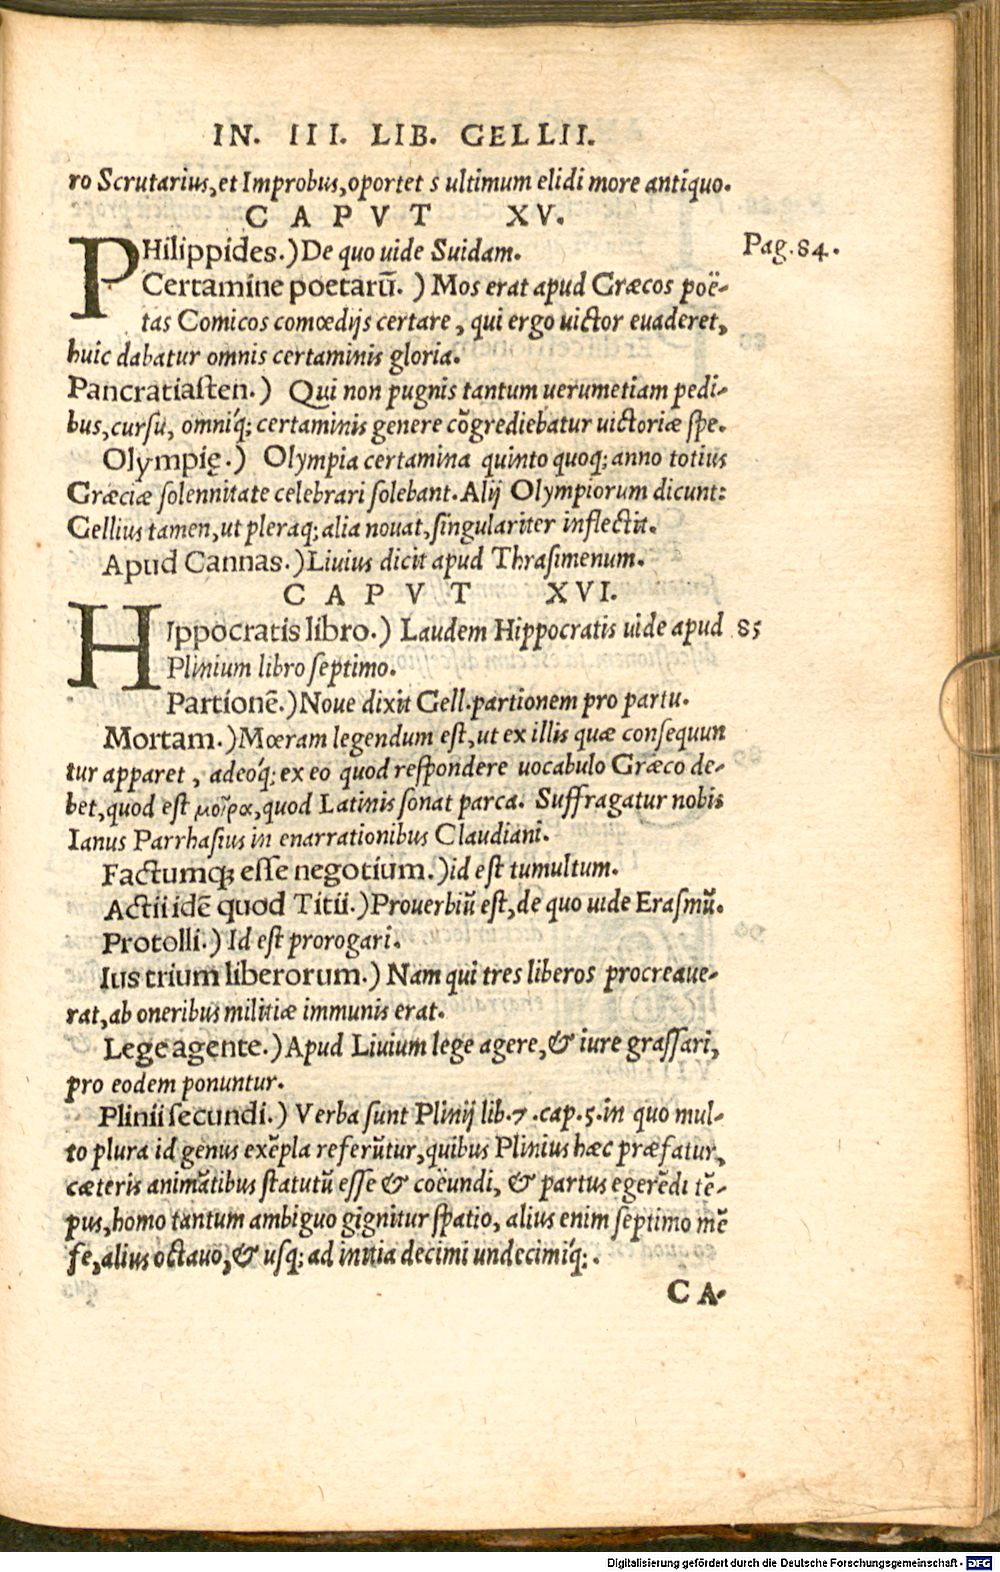 IN. III. LIB. GELLII.
ro Scrutarius, et Improbus, oportet s ultimum elidi more antiquo.
CAPVT XV.
PHilippides.) De quo uide Suidam.
Pag. 84.
Certamine poetarū.) Mos erat apud Græcos poë-
tas Comicos comœdijs certare, qui ergo uictor euaderet,
huic dabatur omnis certaminis gloria.
Pancratiasten.) Qui non pugnis tantum uerumetiam pedi-
bus, cursu, omniq́; certaminis genere cōgrediebatur uictoriæ spe.
Olympię.) Olympia certamina quinto quoq; anno totius
Græciæ solennitate celebrari solebant. Alij Olympiorum dicunt:
Gellius tamen, ut pleraq; alia nouat, singulariter inflectit.
Apud Cannas.) Liuius dicit apud Thrasimenum.
CAPVT XVI.
HIppocratis libro.) Laudem Hippocratis uide apud
85
Plinium libro septimo.
Partionē.) Noue dixit Gell. partionem pro partu.
Mortam.) Mœram legendum est, ut ex illis quæ consequun
tur apparet, adeoq́; ex eo quod respondere uocabulo Græco de-
bet, quod est μοῖρα, quod Latinis sonat parca. Suffragatur nobis
Ianus Parrhasius in enarrationibus Claudiani.
Factumq; esse negotium.) id est tumultum.
Actii idē quod Titii.) Prouerbiū est, de quo uide Erasmū.
Protolli.) Id est prorogari.
Ius trium liberorum.) Nam qui tres liberos procreaue-
rat, ab oneribus militiæ immunis erat.
Lege agente.) Apud Liuium lege agere, & iure grassari,
pro eodem ponuntur.
Plinii secundi.) Verba sunt Plinij lib. 7. cap. 5. in quo mul-
to plura id genus exēpla referūtur, quibus Plinius hæc præfatur,
cæteris animātibus statutū esse & coëundi, & partus egerēdi tē-
pus, homo tantum ambiguo gignitur spatio, alius enim septimo mē
se, alius octauo, & usq; ad initia decimi undecimiq́;.
CA-
Digitalisierung gefördert durch die Deutsche Forschungsgemeinschaft - DFG